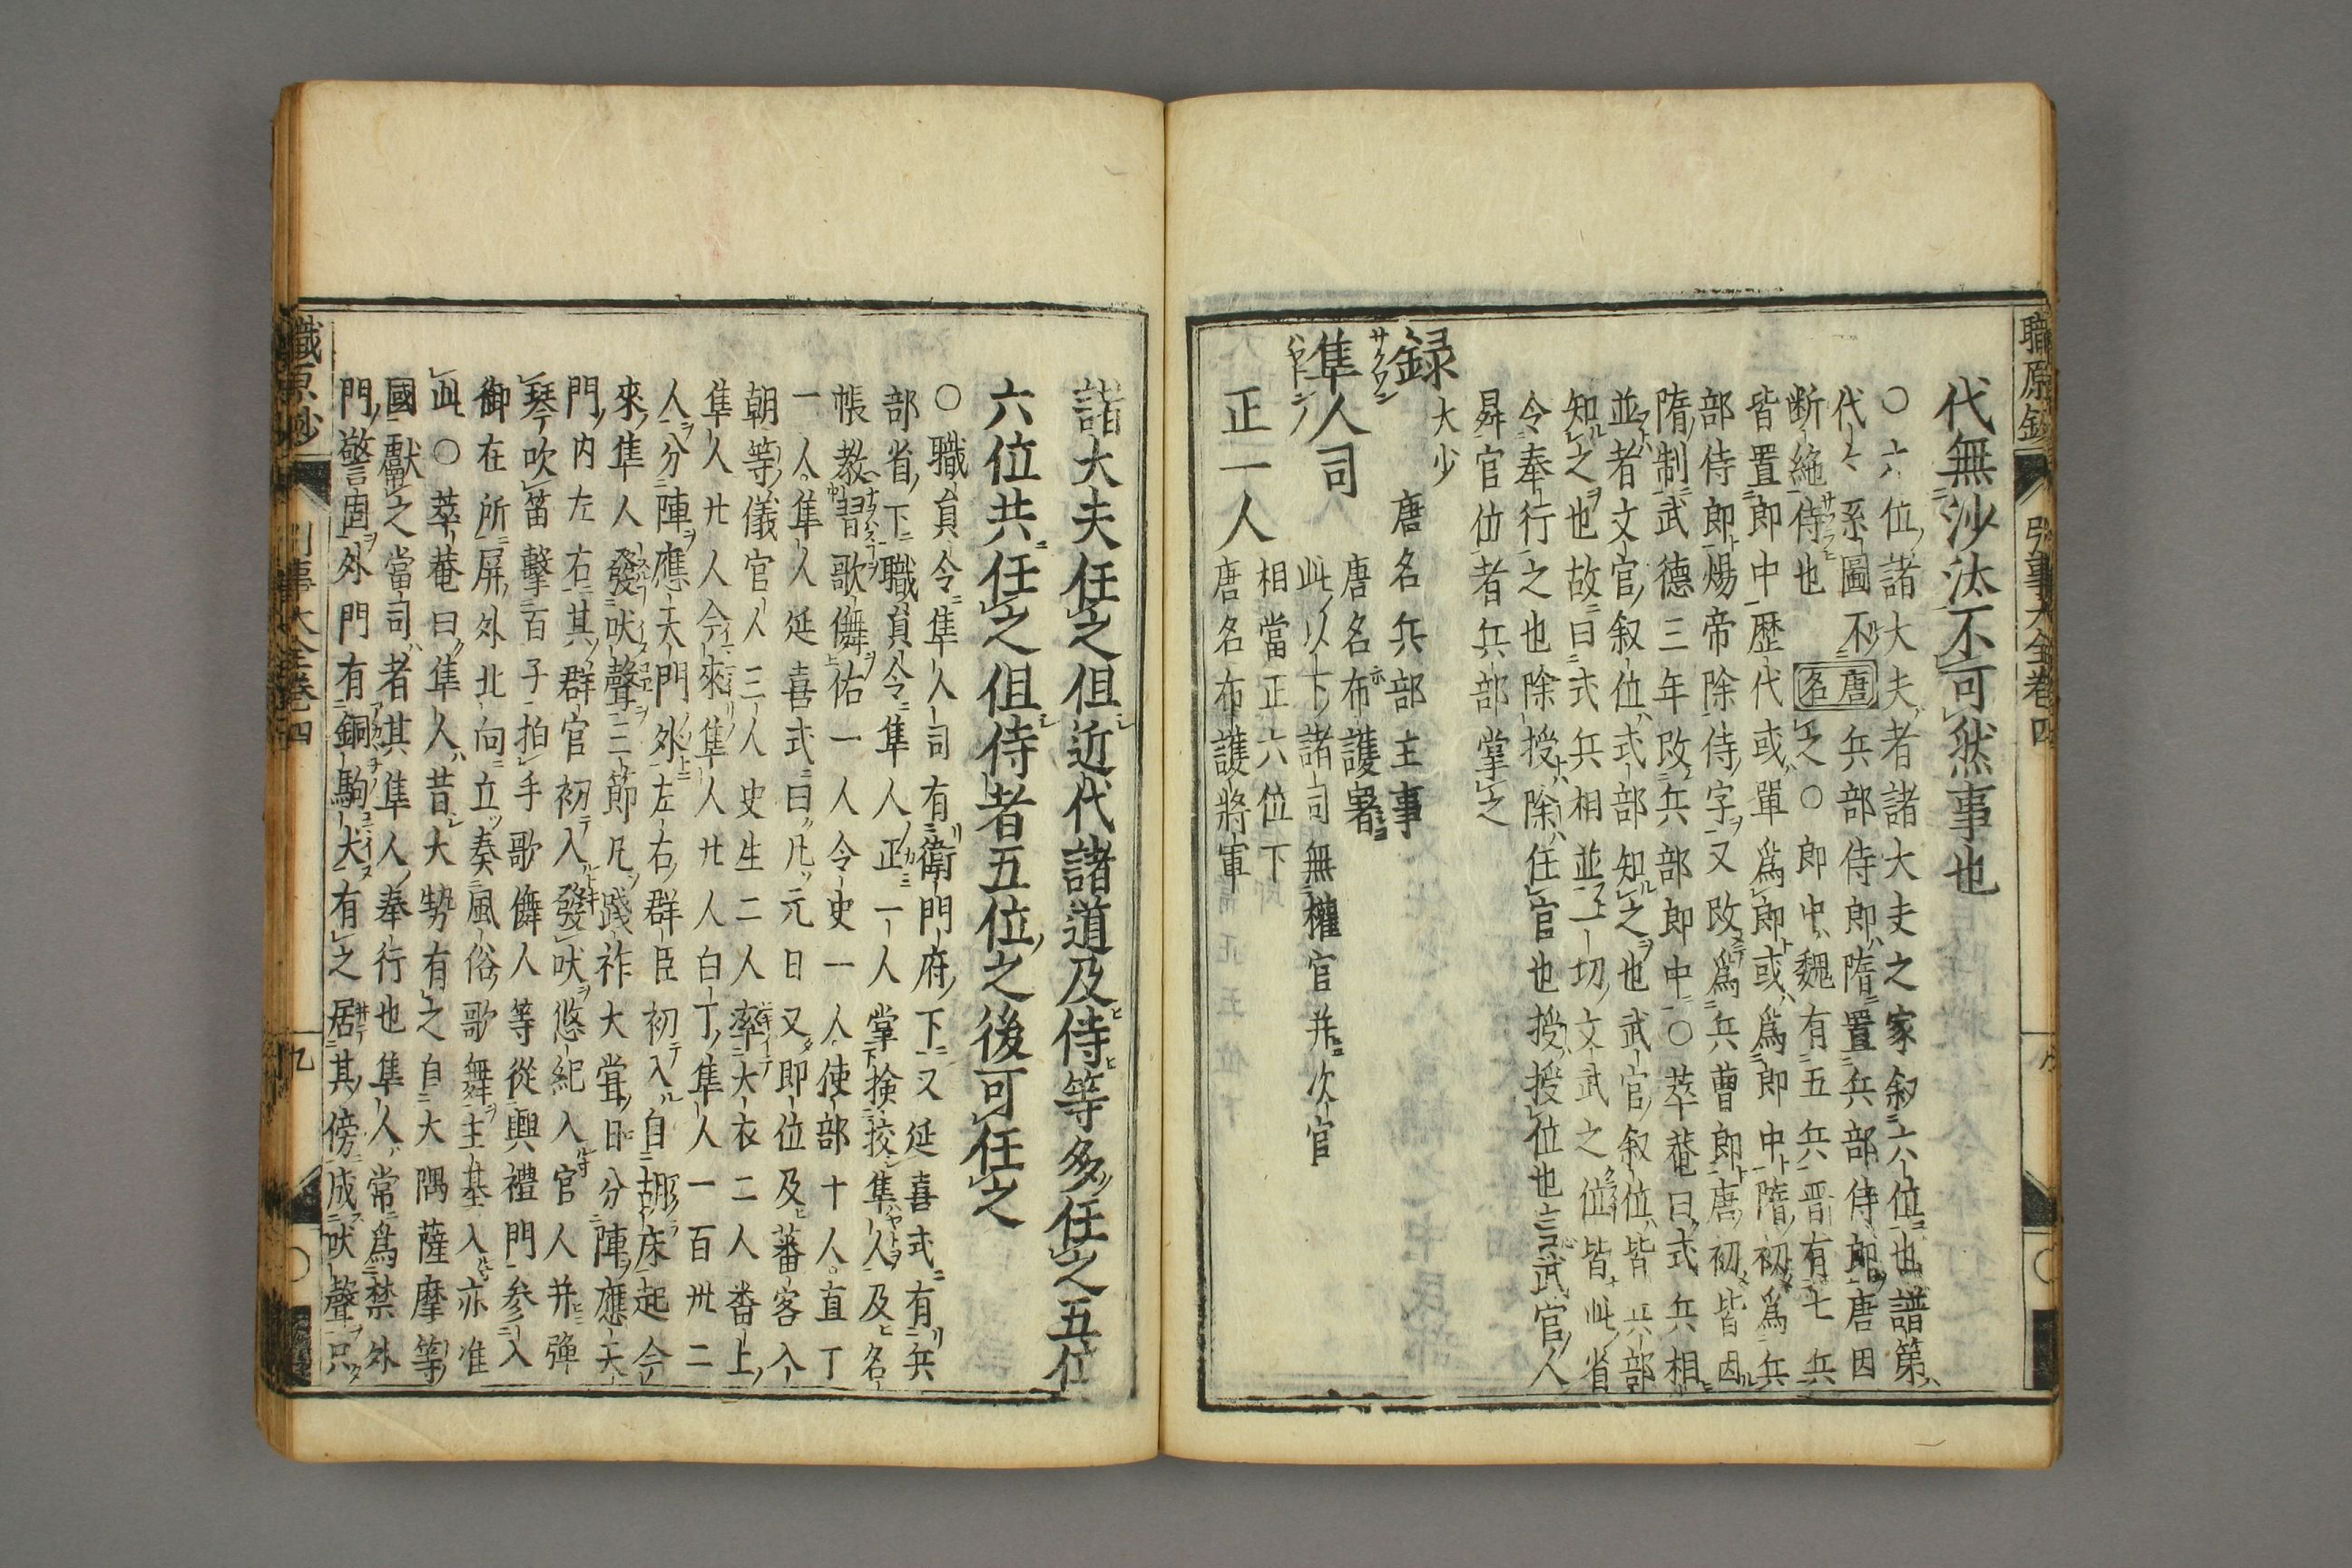 代無沙汰不可然事也
○六位諸大夫者諸大夫之家叙六位也譜第
代々系圖不
断絶侍也
唐名
兵部侍郎隋置兵部侍郎唐因
之○郎中魏有五兵晋有七兵
皆置郎中歴代或單爲郎或爲郎中隋初爲兵
部侍郎煬帝除侍字又改爲兵曹郎唐初皆因
隋制武德三年改兵部郎中○萃菴曰式兵相
並者文官叙位式部知之也武官叙位皆兵部
知之也故曰式兵相並一切文武之位皆此省
令奉行之也除授除任官也授授位也言武官人
昇官位者兵部掌之
録 大少
唐名兵部主事
隼人司
唐名布護署
此以下諸司無權官并次官
正一人
相當正六位下
唐名布護將軍
諸大夫任之但近代諸道及侍等多任之五位
六位共任之但侍者五位之後可任之
○職員令隼人司有衛門府下又延喜式有兵
部省下職員令隼人正一人掌掞挍隼人及名
帳教習歌儛佑一人令史一人使部十人直丁
一人隼人延喜式曰凡元日又即位及蕃客入
朝等儀官人三人史生二人率大衣二人番上
隼人廿人今來隼人廿人白丁隼人一百卅二
人分陣應天門外左右群臣初入自胡床起今
來隼人發吠聲三節凡踐祚大甞日分陣應天
門内左右其群官初入發吠悠紀入官人并彈
琴吹笛擊百子拍手歌儛人等從興禮門参入
御在所屏外北向立奏風俗歌舞主基入亦准
此○萃菴曰隼人昔大勢有之自大隅薩摩等
國獻之當司者其隼人奉行也隼人常爲禁外
門警固外門有銅駒犬有之居其傍成吠聲只
職原鈔
引事大全卷四
九